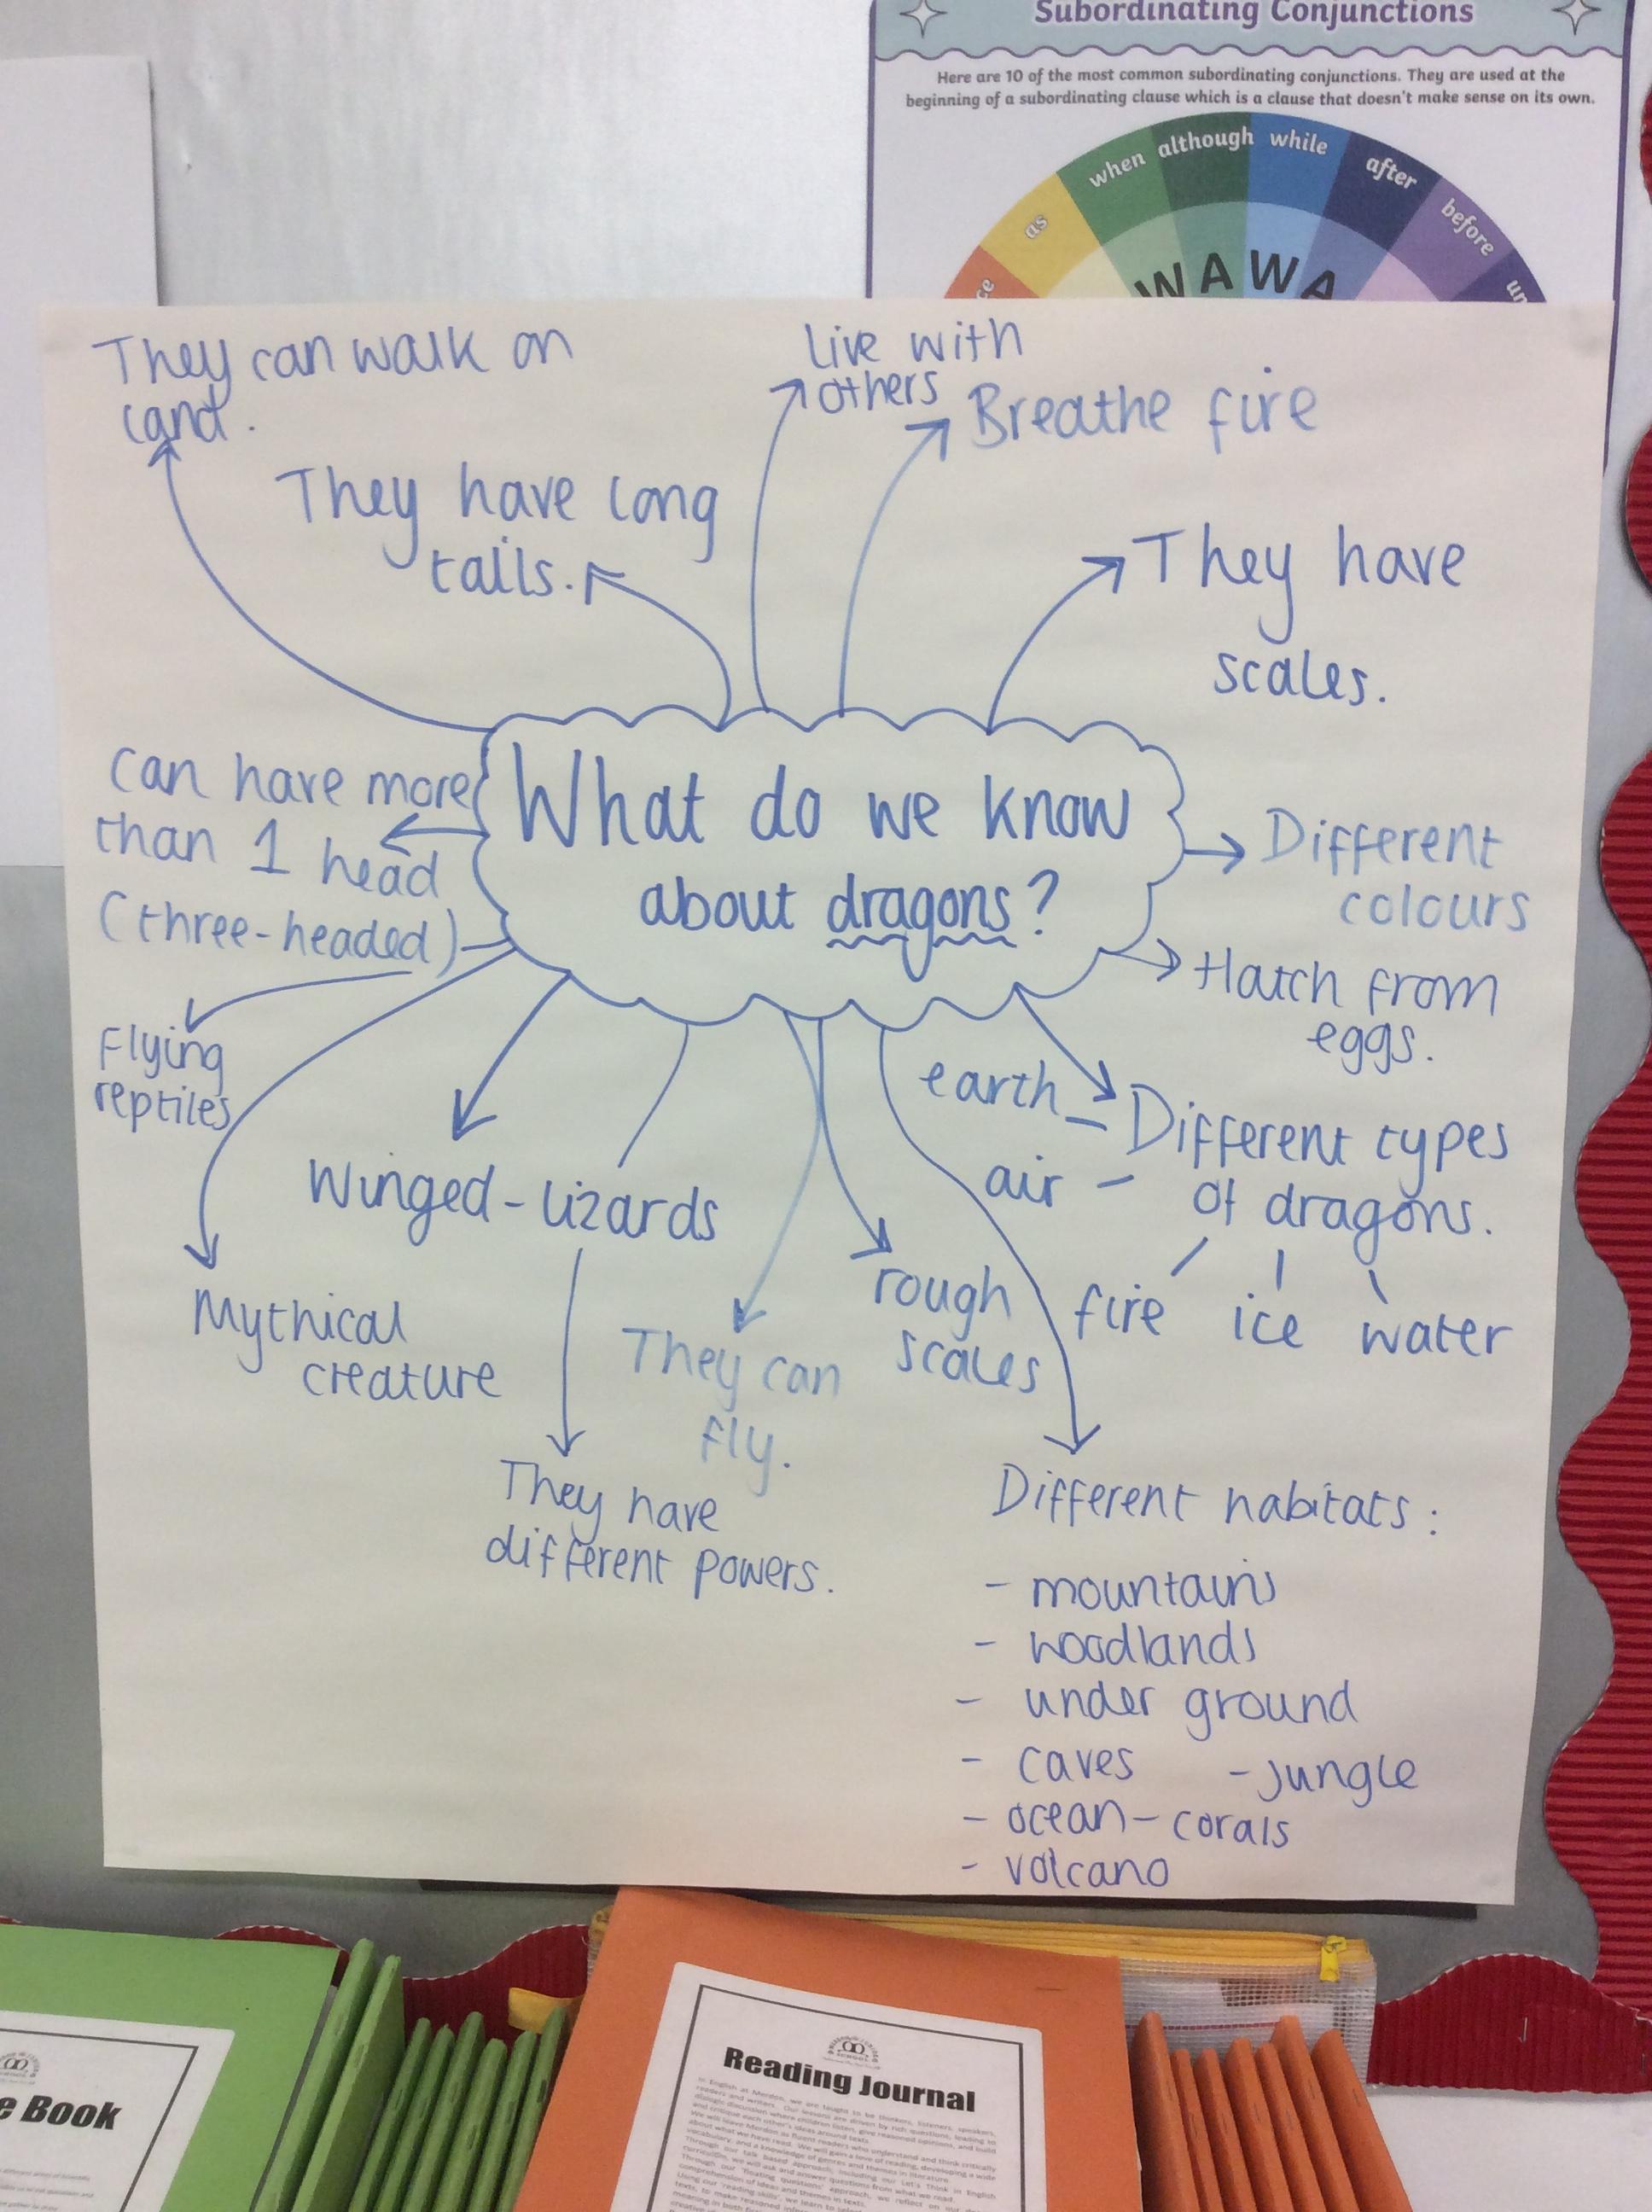 Subordinating Conjunctions
Here are 10 of the most common subordinating conjunctions. They are used at the
beginning of a subordinating clause which is a clause that doesn't make sense on its own.
as
when
although
while
after
before
WAWA
They can walk on
land.
Live with
others
Breathe fire
They have long
tails.
They have
scales.
can have more
than 1 head
(three-headed)
What do we know
about dragons?
Different
colours
Hatch from
eggs.
Flying
reptiles
earth
air
Different types
of dragons.
fire
ice
water
Winged-lizards
rough
scales
Mythical
creature
They can
fly.
They have
different powers.
Different habitats:
- mountains
- woodlands
- under ground
- caves
- jungle
- ocean - corals
- volcano
Book
Reading Journal